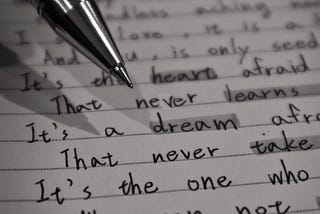 endless aching need
I love , it is a
And , is only seed
It's the heart afraid
That never learns
It's a dream afra
That never take
It's the one who
not